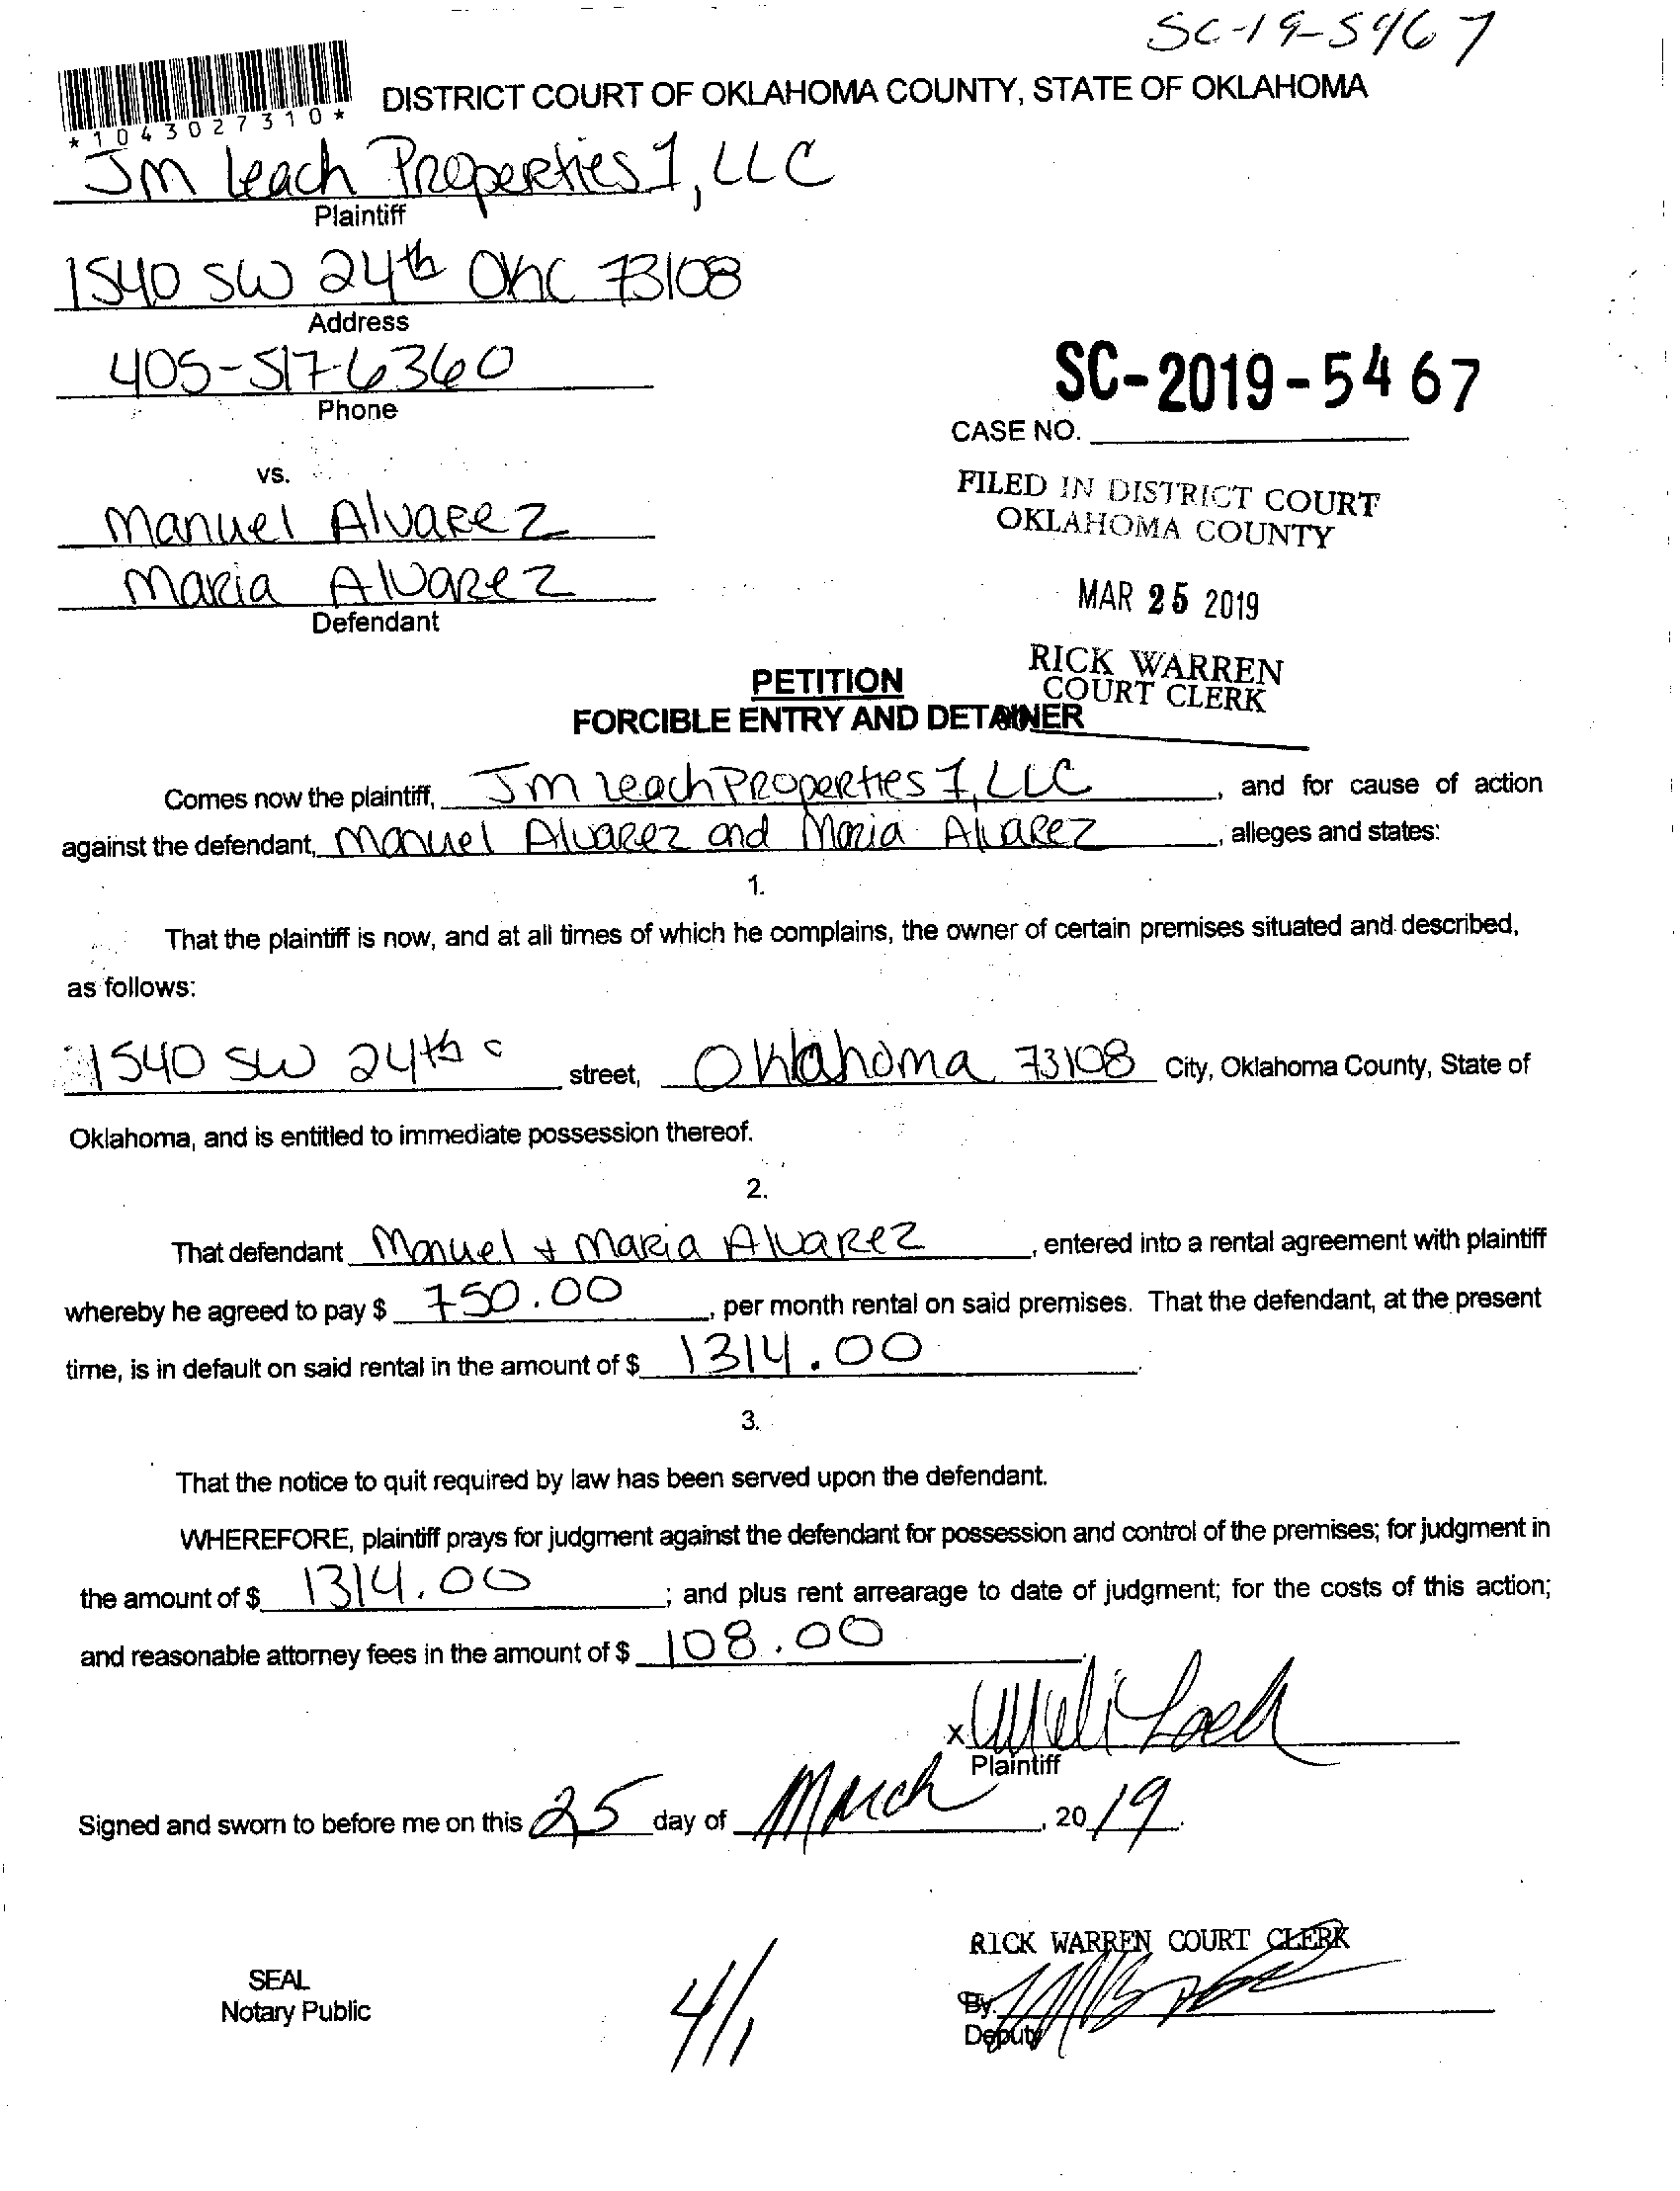 SC-19-5467
*1043027310*
DISTRICT COURT OF OKLAHOMA COUNTY, STATE OF OKLAHOMA
Jm Leach Properties 1, LLC
Plaintiff
1540 SW 24th OKC 73108
Address
405-517-6360
Phone
SC-2019-5467
CASE NO.
vs.
FILED IN DISTRICT COURT
OKLAHOMA COUNTY
Manuel Alvarez
Maria Alvarez
Defendant
MAR 25 2019
RICK WARREN
COURT CLERK
PETITION
FORCIBLE ENTRY AND DETAINER
Comes now the plaintiff, Jm Leach Properties 1, LLC, and for cause of action
against the defendant, Manuel Alvarez and Maria Alvarez, alleges and states:
1.
That the plaintiff is now, and at all times of which he complains, the owner of certain premises situated and described,
as follows:
1540 SW 24th street, Oklahoma 73108 City, Oklahoma County, State of
Oklahoma, and is entitled to immediate possession thereof.
2.
That defendant Manuel + Maria Alvarez, entered into a rental agreement with plaintiff
whereby he agreed to pay $ 750.00, per month rental on said premises. That the defendant, at the present
time, is in default on said rental in the amount of $ 1314.00.
3.
That the notice to quit required by law has been served upon the defendant.
WHEREFORE, plaintiff prays for judgment against the defendant for possession and control of the premises; for judgment in
the amount of $ 1314.00; and plus rent arrearage to date of judgment; for the costs of this action;
and reasonable attorney fees in the amount of $ 108.00
x
Plaintiff
Signed and sworn to before me on this 25 day of March, 2019.
RICK WARREN COURT CLERK
SEAL
Notary Public
4/1
By.
Deputy